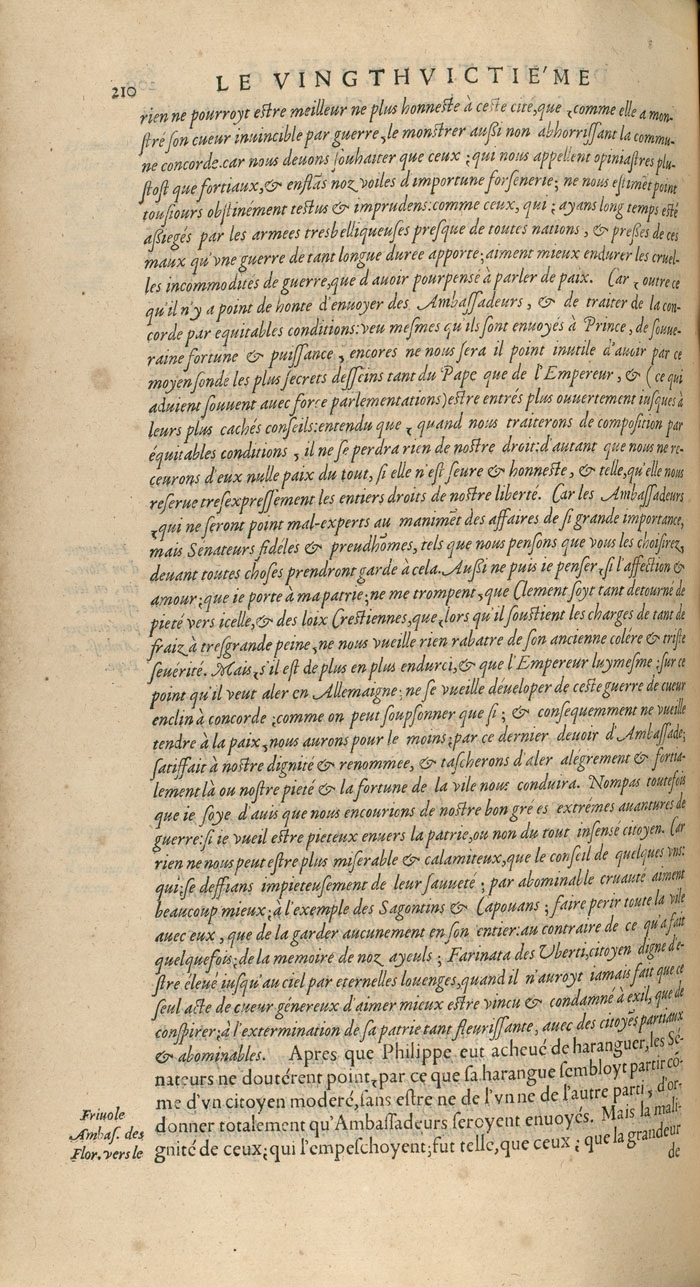 210
LE VINGTHVICTIE'ME
rien ne pourroyt estre meilleur ne plus honneste à ceste cité, que , comme elle a mon-
stré son cueur inuincible par guerre, le monstrer aussi non abhorrissant la commu-
ne concorde. car nous deuons souhaiter que ceux ; qui nous appellent opiniastres plu-
stost que fortiaux, & enflās noz voiles d'importune forsenerie; ne nous estimēt point
tousiours obstinément testus & imprudens: comme ceux, qui ; ayans long temps esté
assiegés par les armees tresbelliqueuses presque de toutes nations , & pressés de ces
maux qu'vne guerre de tant longue duree apporte; aiment mieux endurer les cruel-
les incommodités de guerre, que d'auoir pourpensé à parler de paix. Car , outre ce
qu'il n'y a point de honte d'enuoyer des Ambassadeurs , & de traiter de la con-
corde par equitables conditions: veu mesmes qu'ils sont enuoyés à Prince, de souue-
raine fortune & puissance , encores ne nous sera il point inutile d'auoir par ce
moyen sondé les plus secrets desseins tant du Pape que de l'Empereur , & ( ce qui
aduient souuent auec force parlementations) estre entrés plus ouuertement iusques à
leurs plus cachés conseils: entendu que , quand nous traiterons de composition par
équitables conditions , il ne se perdra rien de nostre droit: d'autant que nous ne re-
ceurons d'eux nulle paix du tout, si elle n'est seure & honneste , & telle, qu'elle nous
reserue tresexpressement les entiers droits de nostre liberté. Car les Ambassadeurs
, qui ne seront point mal-experts au manimēt des affaires de si grande importance,
mais Senateurs fidéles & preudhōmes, tels que nous pensons que vous les choisirez,
deuant toutes choses prendront garde à cela. Aussi ne puis ie penser, si l'affection &
amour; que ie porte à ma patrie; ne me trompent, que Clement soyt tant détourné de
pieté vers icelle, & des loix Crestiennes, que , lors qu'il soustient les charges de tant de
fraiz à tresgrande peine, ne nous vueille rien rabatre de son ancienne colére & triste
seuérité. Mais, s'il est de plus en plus endurci, & que l'Empereur luymesme ; sur ce
point qu'il veut aler en Allemaigne; ne se vueille déueloper de ceste guerre de cueur
enclin à concorde ; comme on peut soupsonner que si ; & consequemment ne vueille
tendre à la paix, nous aurons pour le moins; par ce dernier deuoir d'Ambassade;
satiffait à nostre dignité & renommee, & tascherons d'aler alegrement & fortia-
lement là ou nostre pieté & la fortune de la vile nous conduira. Nompas toutefois
que ie soye d'auis que nous encourions de nostre bon gré es extrémes auantures de
guerre: si ie vueil estre pieteux enuers la patrie, ou non du tout insensé citoyen. Car
rien ne nous peut estre plus miserable & calamiteux, que le conseil de quelques vns:
qui; se deffians impieteusement de leur sauueté ; par abominable cruauté aiment
beaucoup mieux; à l'exemple des Sagontins & Capouans ; faire perir toute la vile
auec eux , que de la garder aucunement en son entier: au contraire de ce qu'a fait
quelquefois; de la memoire de noz ayeuls ; Farinata des Vberti, citoyen digne de-
stre éleué iusqu'au ciel par eternelles louenges, quand il n'auroyt iamais fait que ce
seul acte de cueur génereux d'aimer mieux estre vincu & condamné à exil, que de
conspirer; à l'extermination de sa patrie tant fleurissante, auec des citoyēs partiaux
& abominables. Apres que Philippe eut acheué de haranguer, les Se-
nateurs ne doutérent point, par ce que sa harangue sembloyt partir cō-
me d'vn citoyen moderé, sans estre ne de l'vn ne de l'autre parti , d'or-
donner totalement qu'Ambassadeurs seroyent enuoyés. Mais la mali-
gnité de ceux; qui l'empeschoyent; fut telle, que ceux ; que la grandeur
de
Friuole
Ambas. des
Flor. vers le